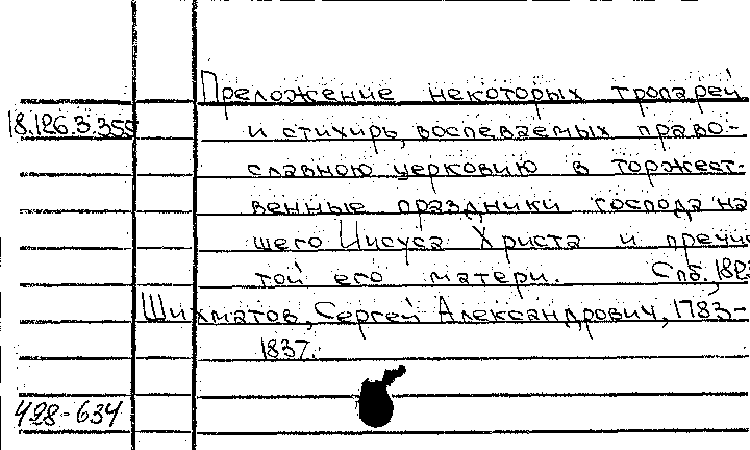 Преложение некоторых тропарей
18.126.3.355
и стихирь, воспеваемых право-
славною церковию в торжест-
венные праздники господа на-
шего Иисуса Христа и пречис
той его матери. Спб.,
Шихматов, Сергей Александрович, 1783-
1837.
428-634